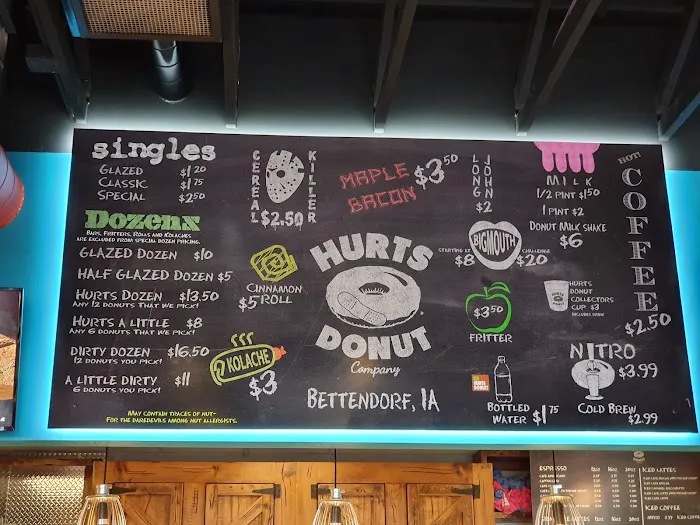 singles
GLAZED $1.20
CLASSIC $1.75
SPECIAL $2.50
Dozens
BARS, FRITTERS, ROLLS AND KOLACHES
ARE EXCLUDED FROM SPECIAL DOZEN PRICING.
GLAZED DOZEN $10
HALF GLAZED DOZEN $5
HURTS DOZEN $13.50
ANY 12 DONUTS THAT WE PICK!
HURTS A LITTLE $8
ANY 6 DONUTS THAT WE PICK!
DIRTY DOZEN $16.50
12 DONUTS YOU PICK!
A LITTLE DIRTY $11
6 DONUTS YOU PICK!
MAY CONTAIN TRACES OF NUT-
FOR THE DAREDEVILS AMONG NUT ALLERGISTS.
CEREAL KILLER
$2.50
CINNAMON
$5 ROLL
KOLACHE
$3
MAPLE
BACON
$3.50
HURTS
DONUT
Company
BETTENDORF, IA
LONG JOHN
$2
STARTING AT
$8
BIGMOUTH
CHALLENGE
$20
$3.50
FRITTER
BOTTLED
WATER $1.75
HURTS
DONUT
MILK
1/2 PINT $1.50
1 PINT $2
DONUT MILK SHAKE
$6
HURTS
DONUT
COLLECTORS
CUP $3
INCLUDES DRINK
NITRO
$3.99
COLD BREW
$2.99
HOT!
COFFEE
$2.50
ESPRESSO 12oz 16oz 20oz
ICED LATTES
ICED COFFEE